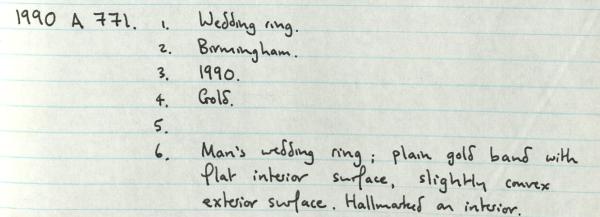 1990 A 771. 1. Wedding ring.
2. Birmingham.
3. 1990.
4. Gold.
5.
6. Man's wedding ring; plain gold band with
flat interior surface, slightly convex
exterior surface. Hallmarked on interior.